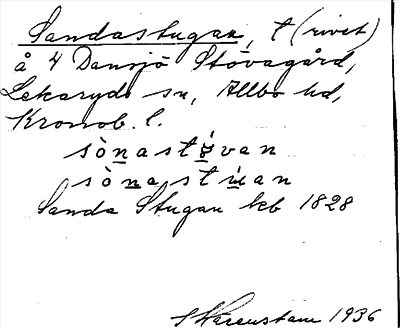 Sandastugan, t (rivet)
å 4 Dansjö Stövagård,
Lekaryds sn, Allbo hd,
Kronob. l.
sònastøvan
sònastuan
Sanda Stugan kb 1828
1936